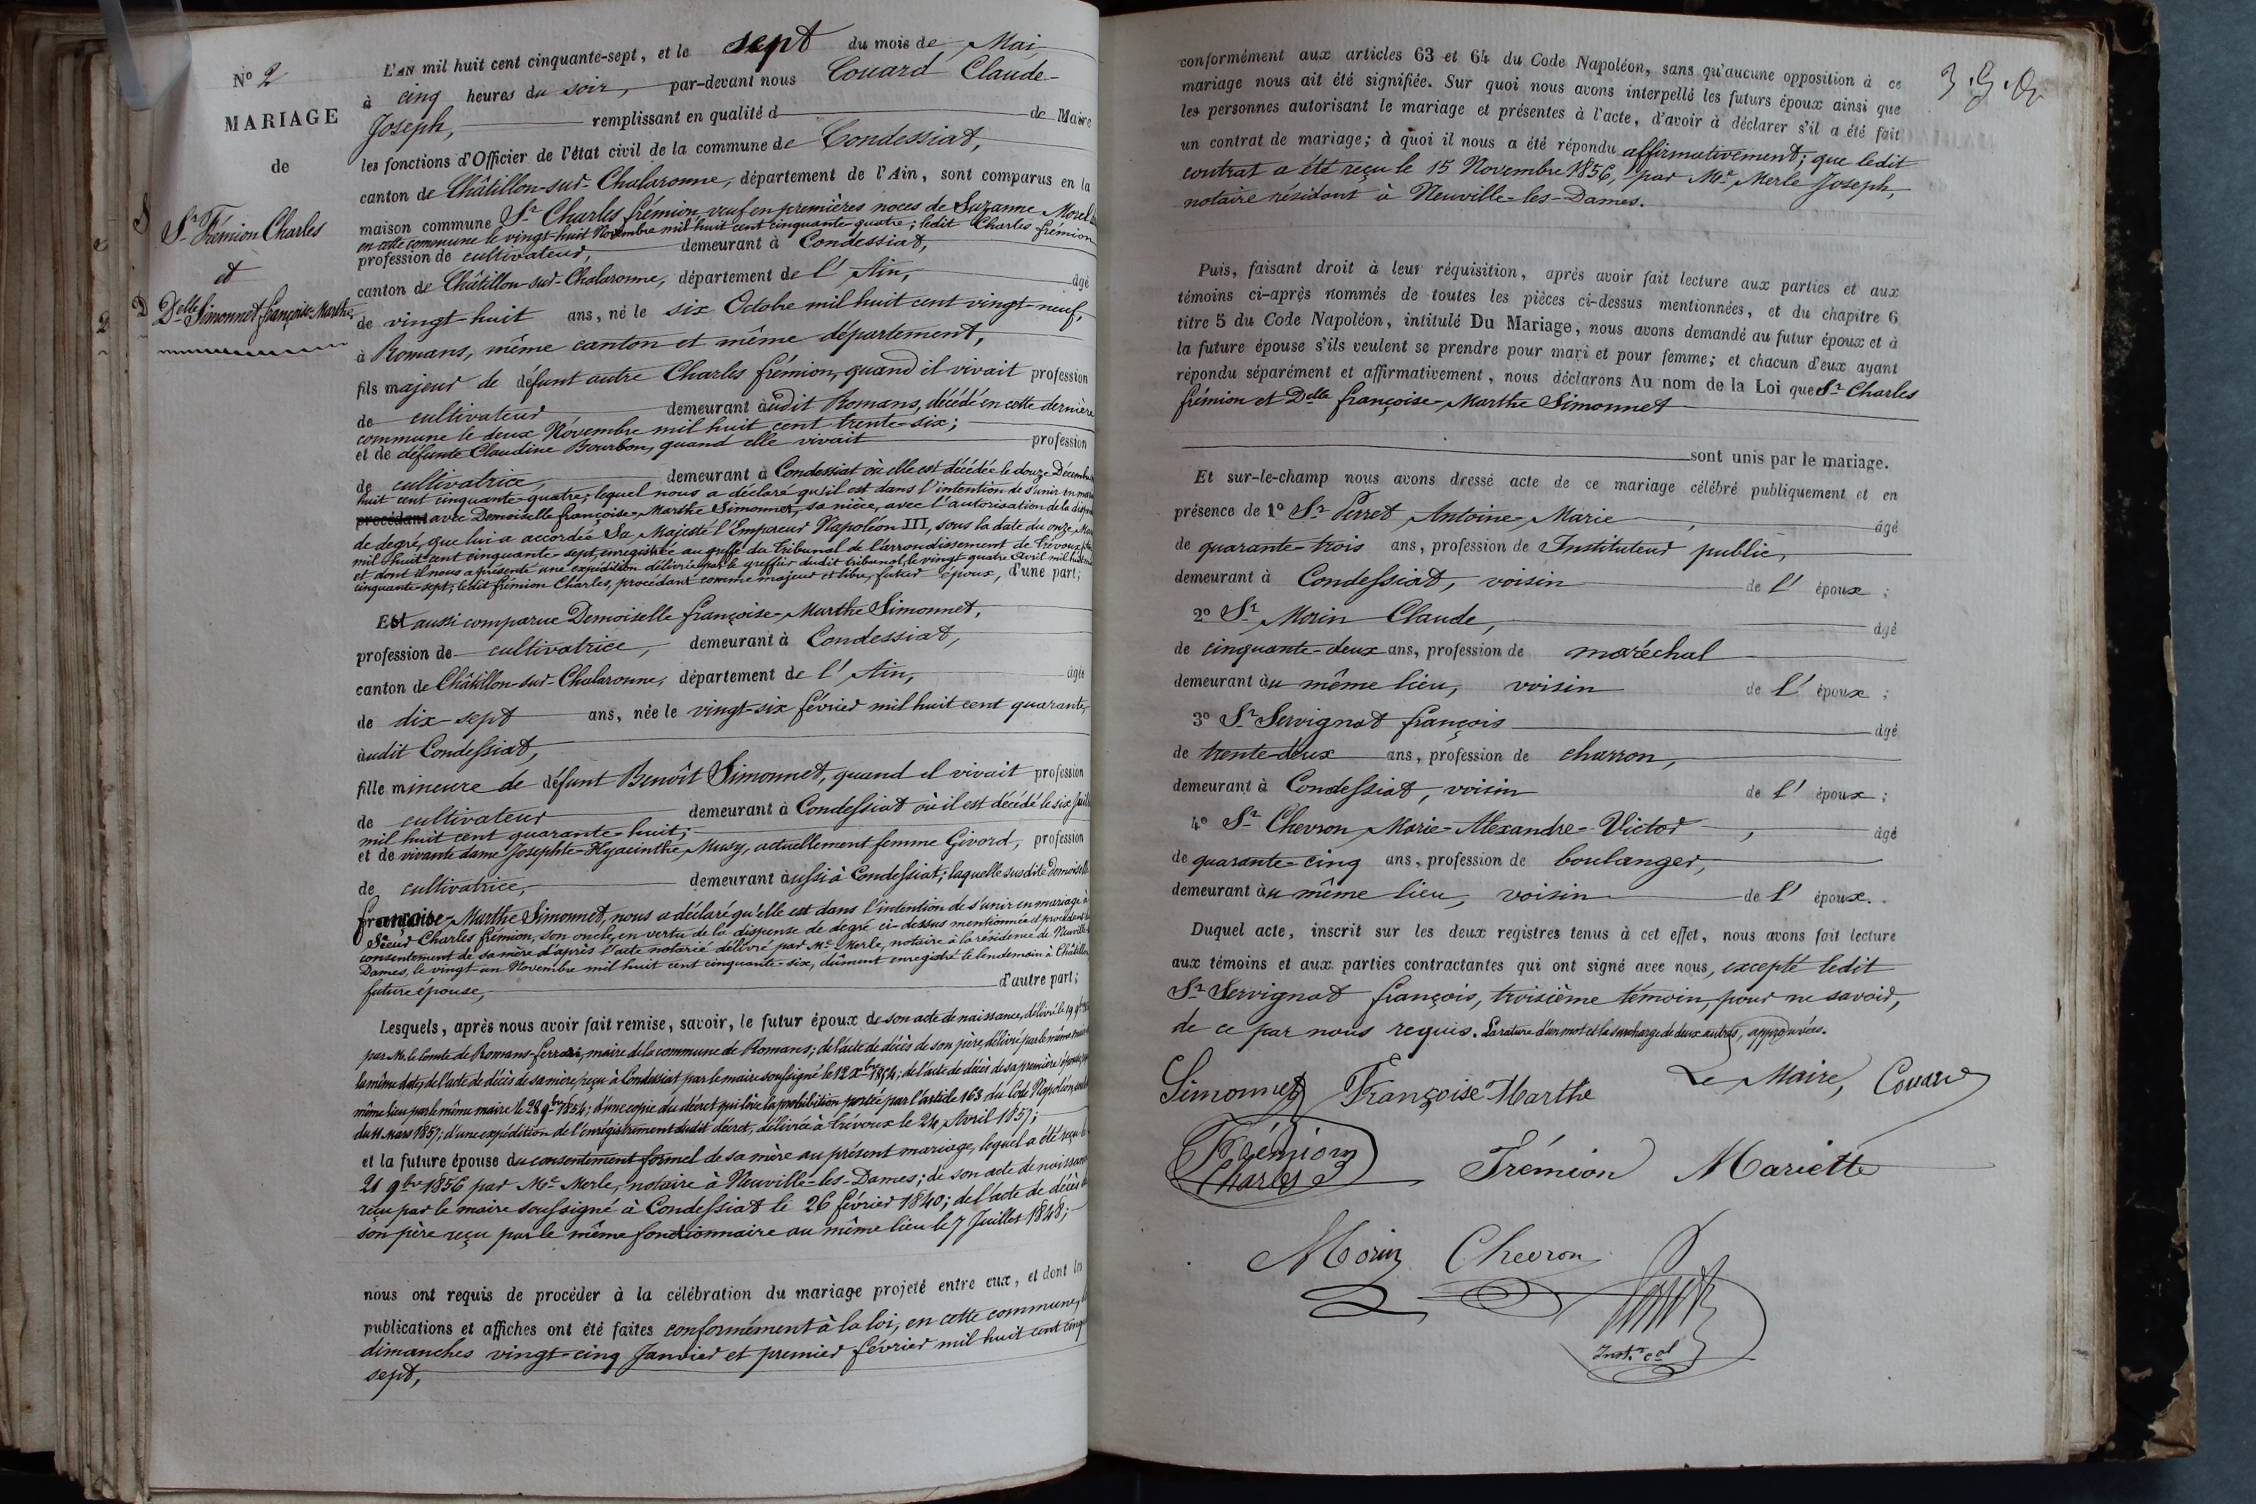 N° 2
MARIAGE
de
Sr Frémion Charles
et
Delle Simonnet françoise-Marthe
L'AN mil huit cent cinquante-sept, et le sept du mois de Mai
à cinq heures du soir, par-devant nous Couard Claude-
Joseph, remplissant en qualité d de Maire
les fonctions d'Officier de l'état civil de la commune de Condessiat,
canton de Châtillon-sur-Chalaronne, département de l'Ain, sont comparus en la
maison commune Sr Charles frémion, veuf en premières noces de Suzanne Morel
en cette commune le vingt-huit Novembre mil huit cent cinquante-quatre; ledit Charles frémion
profession de cultivateur, demeurant à Condessiat,
canton de Châtillon-sur-Chalaronne, département de l'Ain, âgé
de vingt-huit ans, né le six Octobre mil huit cent vingt-neuf,
à Romans, même canton et même département,
fils majeur de défunt autre Charles frémion, quand il vivait profession
de cultivateur demeurant audit Romans, décédé en cette dernière
commune le deux Novembre mil huit cent trente-six;
et de défunte Claudine Bourbon, quand elle vivait profession
de cultivatrice, demeurant à Condessiat où elle est décédée le douze Décembre
huit cent cinquante-quatre; lequel nous a déclaré qu'il est dans l'intention de s'unir en
procédant avec Demoiselle françoise-Marthe Simonnet, sa nièce, avec l'autorisation de la
de degré, que lui a accordée Sa Majesté l'Empereur Napoléon III, sous la date du onze
mil huit cent cinquante-sept, enregistrée au greffe du Tribunal de l'arrondissement de Trévoux
et dont il nous a présenté une expédition délivrée par le greffier dudit tribunal, le vingt quatre Avril mil huit
cinquante-sept; ledit frémion Charles, procédant comme majeur et libre, futur époux, d'une part;
Est aussi comparue Demoiselle françoise-Marthe Simonnet,
profession de cultivatrice, demeurant à Condessiat,
canton de Châtillon-sur-Chalaronne, département de l'Ain, âgée
de dix-sept ans, née le vingt-six février mil huit cent quarante,
audit Condessiat,
fille mineure de défunt Benoît Simonnet, quand il vivait profession
de cultivateur demeurant à Condessiat où il est décédé le six
mil huit cent quarante-huit;
et de vivante dame Josephte-Hyacinthe Musy, actuellement femme Givord, profession
de cultivatrice, demeurant aussi à Condessiat; laquelle susdite Demoiselle
françoise-Marthe Simonnet, nous a déclaré qu'elle est dans l'intention de s'unir en mariage à
Sieur Charles frémion, son oncle, en vertu de la dispense de degré ci-dessus mentionnée et procédant
consentement de sa mère d'après l'acte notarié délivré par Me Merle, notaire à la résidence de Neuville
Dames, le vingt un Novembre mil huit cent cinquante-six, dûment enregistré le lendemain à Châtillon
future épouse, d'autre part;
Lesquels, après nous avoir fait remise, savoir, le futur époux de son acte de naissance, délivré le 19
par Mr le Comte de Romans-ferrari, maire de la commune de Romans; de l'acte de décès de son père, délivré par le même
la même date; de l'acte de décès de sa mère, reçu à Condessiat par le maire soussigné le 12 Xbre 1854; de l'acte de décès de sa première épouse,
même lieu par le même maire le 28 9bre 1854; d'une copie du décret qui lève la prohibition portée par l'article 163 du Code Napoléon,
du 11 Mars 1857; d'une expédition de l'enrégistrement dudit décret, délivrée à Trévoux le 24 Avril 1857;
et la future épouse du consentement formel de sa mère au présent mariage, lequel a été reçu
21 9bre 1856 par Me Merle, notaire à Neuville-les-Dames; de son acte de naissance
reçu par le maire soussigné à Condessiat le 26 février 1840; de l'acte de décès
son père reçu par le même fonctionnaire au même lieu le 7 Juillet 1848;
nous ont requis de procéder à la célébration du mariage projeté entre eux, et dont les
publications et affiches ont été faites conformément à la loi, en cette commune,
dimanches vingt-cinq Janvier et premier février mil huit cent
sept,
conformément aux articles 63 et 64 du Code Napoléon, sans qu'aucune opposition à ce
mariage nous ait été signifiée. Sur quoi nous avons interpellé les futurs époux ainsi que
les personnes autorisant le mariage et présentes à l'acte, d'avoir à déclarer s'il a été fait
un contrat de mariage; à quoi il nous a été répondu affirmativement; que ledit
contrat a été reçu le 15 Novembre 1856, par Me Merle Joseph,
notaire résidant à Neuville-les-Dames.
Puis, faisant droit à leur réquisition, après avoir fait lecture aux parties et aux
témoins ci-après nommés de toutes les pièces ci-dessus mentionnées, et du chapitre 6
titre 5 du Code Napoléon, intitulé Du Mariage, nous avons demandé au futur époux et à
la future épouse s'ils veulent se prendre pour mari et pour femme; et chacun d'eux ayant
répondu séparément et affirmativement, nous déclarons Au nom de la Loi que Sr Charles
frémion et Delle françoise-Marthe Simonnet
sont unis par le mariage.
Et sur-le-champ nous avons dressé acte de ce mariage célébré publiquement et en
présence de 1° Sr Perret Antoine-Marie, âgé
de quarante-trois ans, profession de Instituteur public,
demeurant à Condessiat, voisin de l'époux;
2° Sr Morin Claude, âgé
de cinquante-deux ans, profession de maréchal
demeurant au même lieu, voisin de l'époux;
3° Sr Servignat françois âgé
de trente-deux ans, profession de charron,
demeurant à Condessiat, voisin de l'époux;
4° Sr Chevron Marie-Alexandre-Victor, âgé
de quarante-cinq ans, profession de boulanger,
demeurant au même lieu, voisin de l'époux.
Duquel acte, inscrit sur les deux registres tenus à cet effet, nous avons fait lecture
aux témoins et aux parties contractantes qui ont signé avec nous, excepté ledit
Sr Servignat françois, troisième témoin, pour ne savoir,
de ce par nous requis. La rature d'un mot et la surcharge de deux autres, approuvées.
Simonnet Françoise Marthe Le Maire, Couard
Frémion
Charles Frémion Mariette
Morin Chevron
Perret
Instr cal